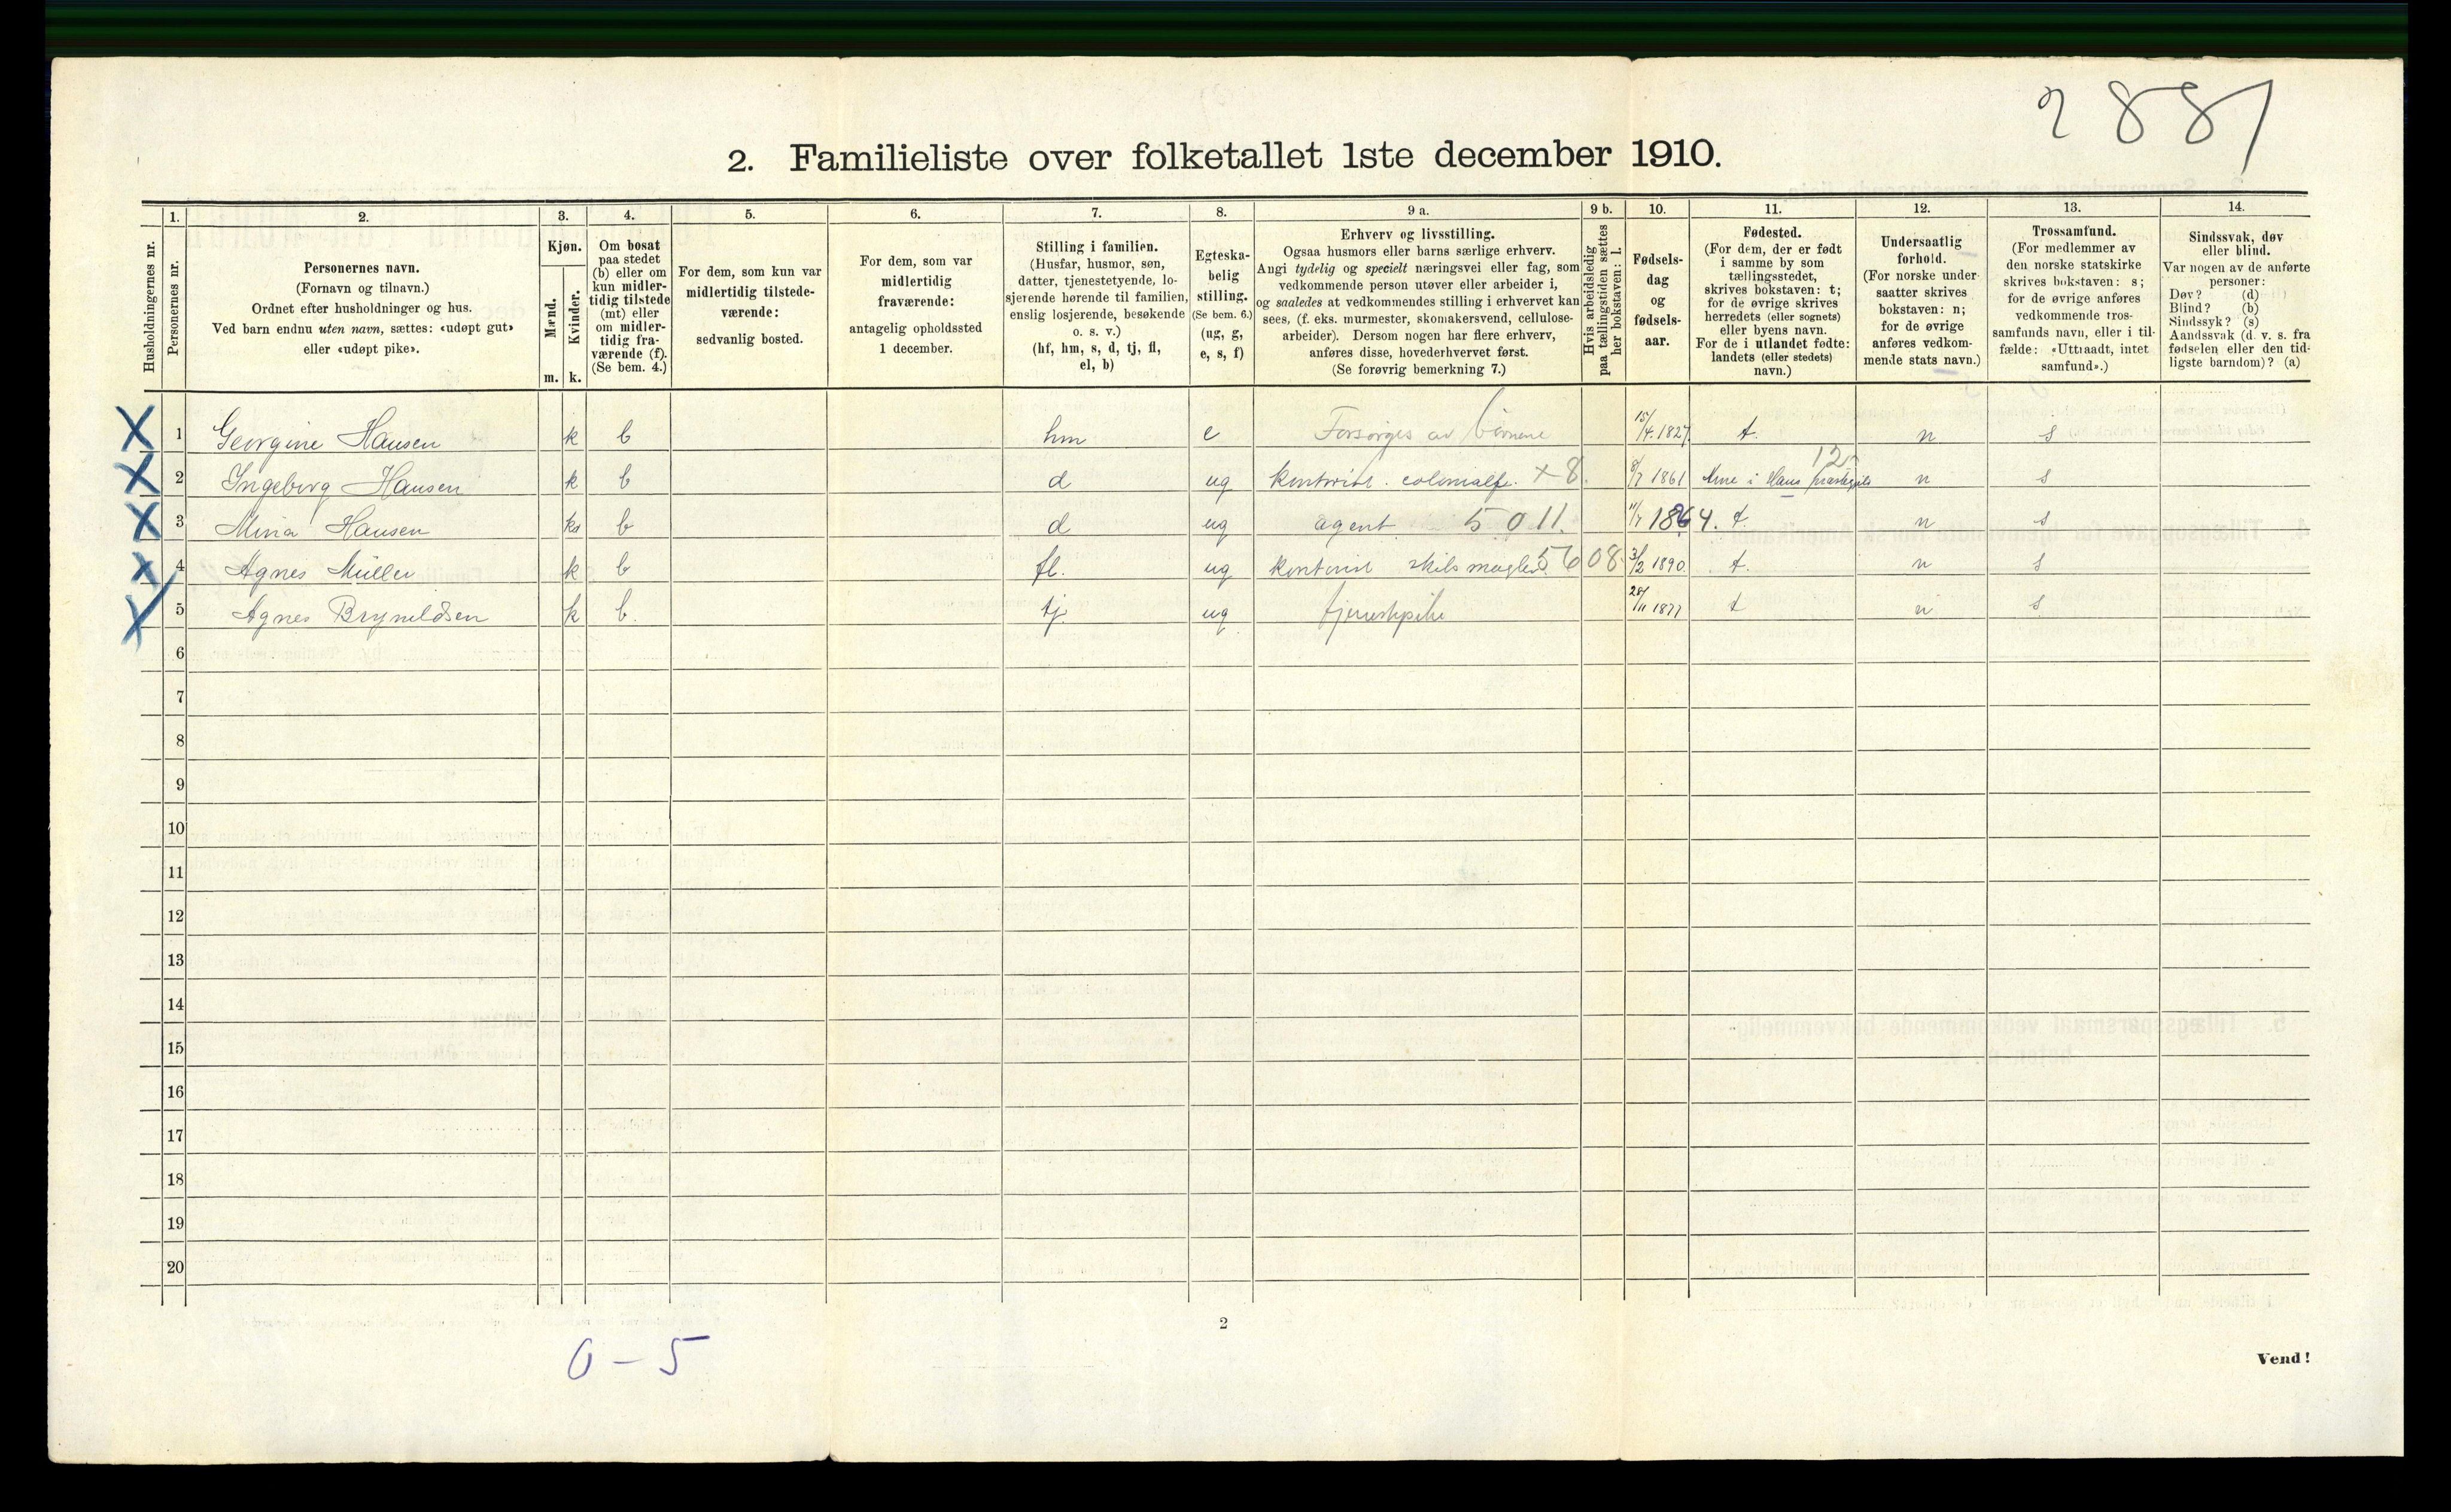 2887
2. Familieliste over folketallet 1ste december 1910.
Husholdningernes nr.
1. Personernes nr.
2. Personernes navn.
(Fornavn og tilnavn.)
Ordnet efter husholdninger og hus.
Ved barn endnu uten navn, sættes: «udøpt gut»
eller «udøpt pike».
3. Kjøn.
Mænd. Kvinder.
m. k.
4. Om bosat
paa stedet
(b) eller om
kun midler-
tidig tilstede
(mt) eller
om midler-
tidig fra-
værende (f).
(Se bem. 4.)
5. For dem, som kun var
midlertidig tilstede-
værende:
sedvanlig bosted.
6. For dem, som var
midlertidig
fraværende:
antagelig opholdssted
1 december.
7. Stilling i familien.
(Husfar, husmor, søn,
datter, tjenestetyende, lo-
sjerende hørende til familien,
enslig losjerende, besøkende
o. s. v.)
(hf, hm, s, d, tj, fl,
el, b)
8. Egteska-
belig
stilling.
(Se bem. 6.)
(ug, g,
e, s, f)
9 a. Erhverv og livsstilling.
Ogsaa husmors eller barns særlige erhverv.
Angi tydelig og specielt næringsvei eller fag, som
vedkommende person utøver eller arbeider i,
og saaledes at vedkommendes stilling i erhvervet kan
sees, (f. eks. murmester, skomakersvend, cellulose-
arbeider). Dersom nogen har flere erhverv,
anføres disse, hovederhvervet først.
(Se forøvrig bemerkning 7.)
9 b. Hvis arbeidsledig
paa tællingstiden sættes
her bokstaven: l.
10. Fødsels-
dag
og
fødsels-
aar.
11. Fødested.
(For dem, der er født
i samme by som
tællingsstedet,
skrives bokstaven: t;
for de øvrige skrives
herredets (eller sognets)
eller byens navn.
For de i utlandet fødte:
landets (eller stedets)
navn.)
12. Undersaatlig
forhold.
(For norske under-
saatter skrives
bokstaven: n;
for de øvrige
anføres vedkom-
mende stats navn.)
13. Trossamfund.
(For medlemmer av
den norske statskirke
skrives bokstaven: s;
for de øvrige anføres
vedkommende tros-
samfunds navn, eller i til-
fælde: «Uttraadt, intet
samfund».)
14. Sindssvak, døv
eller blind.
Var nogen av de anførte
personer:
Døv? (d)
Blind? (b)
Sindssyk? (s)
Aandssvak (d. v. s. fra
fødselen eller den tid-
ligste barndom)? (a)
X 1 Georgine Hansen k b hm e Forsørges av børnene 15/4.1827. t. n s
X 2 Ingeborg Hansen k b d ug kontorist. colonialf. +8. 8/7 1861 Arne i Haus 12 n s
X 3 Mina Hansen k b d ug agent 5 0 11. 11/7 1864. t. n s
X 4 Agnes Müller k b fl. ug kontorist skibsmægler 56 08. 3/2 1890. t. n s
X 5 Agnes Bryneldsen k b. tj. ug tjenestpike 28/11 1877 t n s
6
7
8
9
10
11
12
13
14
15
16
17
18
19
20
0 – 5
2
Vend!